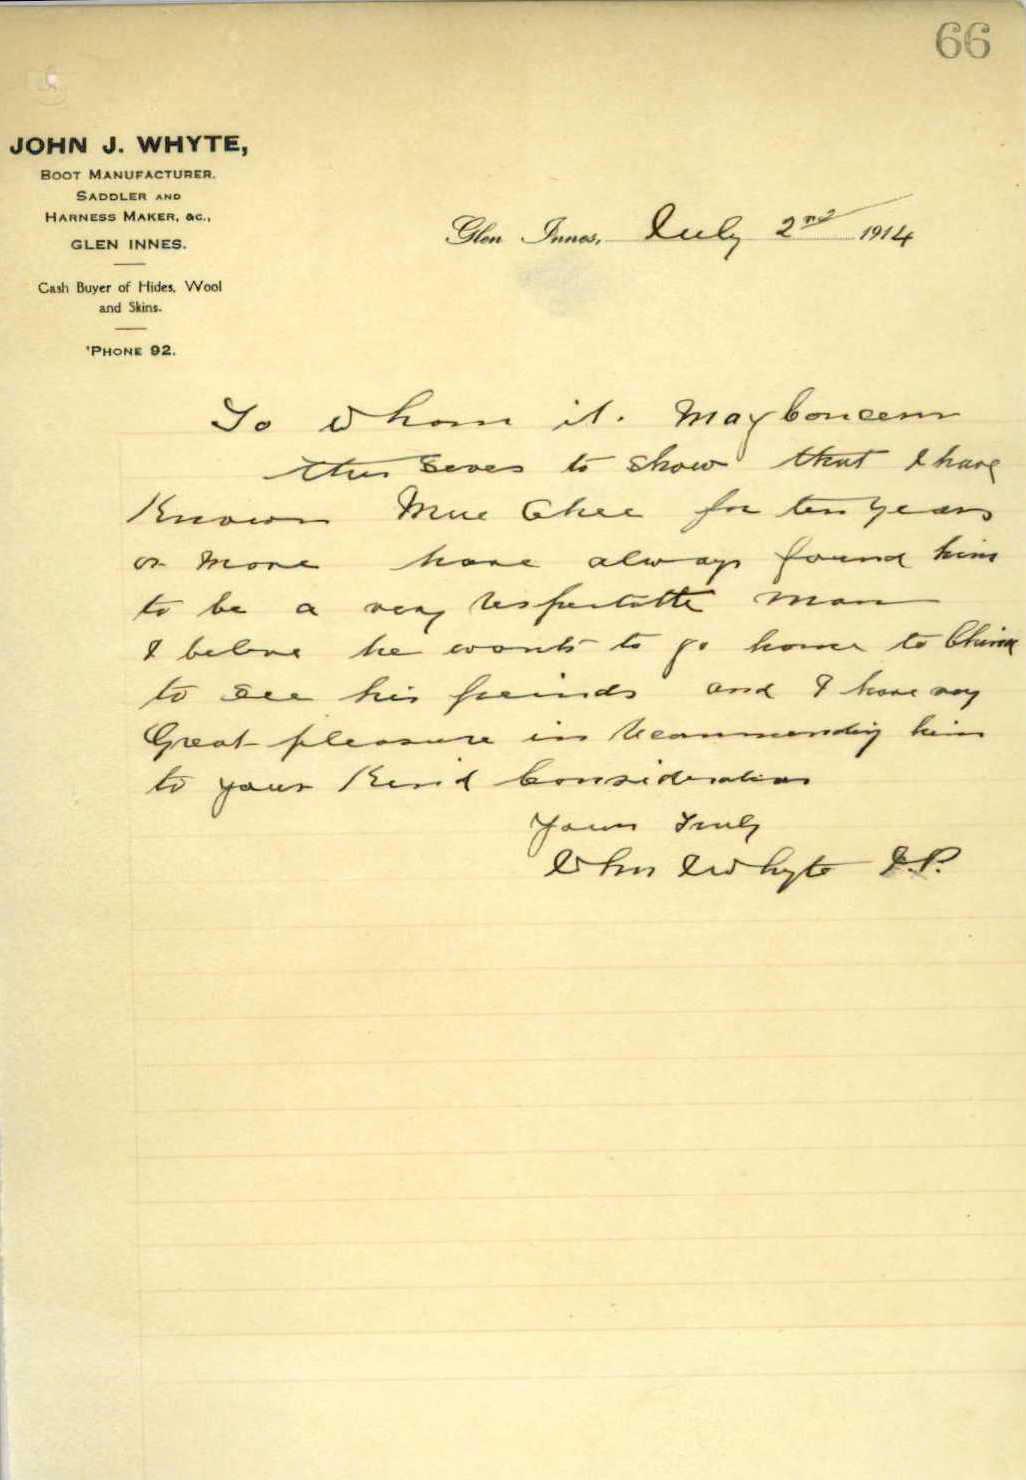 66
JOHN J. WHYTE,
BOOT MANUFACTURER.
SADDLER AND
HARNESS MAKER, &C.,
GLEN INNES.
Cash Buyer of Hides, Wool
and Skins.
'PHONE 92.
Glen Innes, July 2nd 1914
To Whom it. May Concern
this serves to show that I have
Known Mue Chee for ten years
or more have always found him
to be a very respectable man
I believe he wants to go home to China
to see his freinds and I have very
Great pleasure in recommending him
to your Kind Consideration
Yours Truly
John J Whyte J.P.